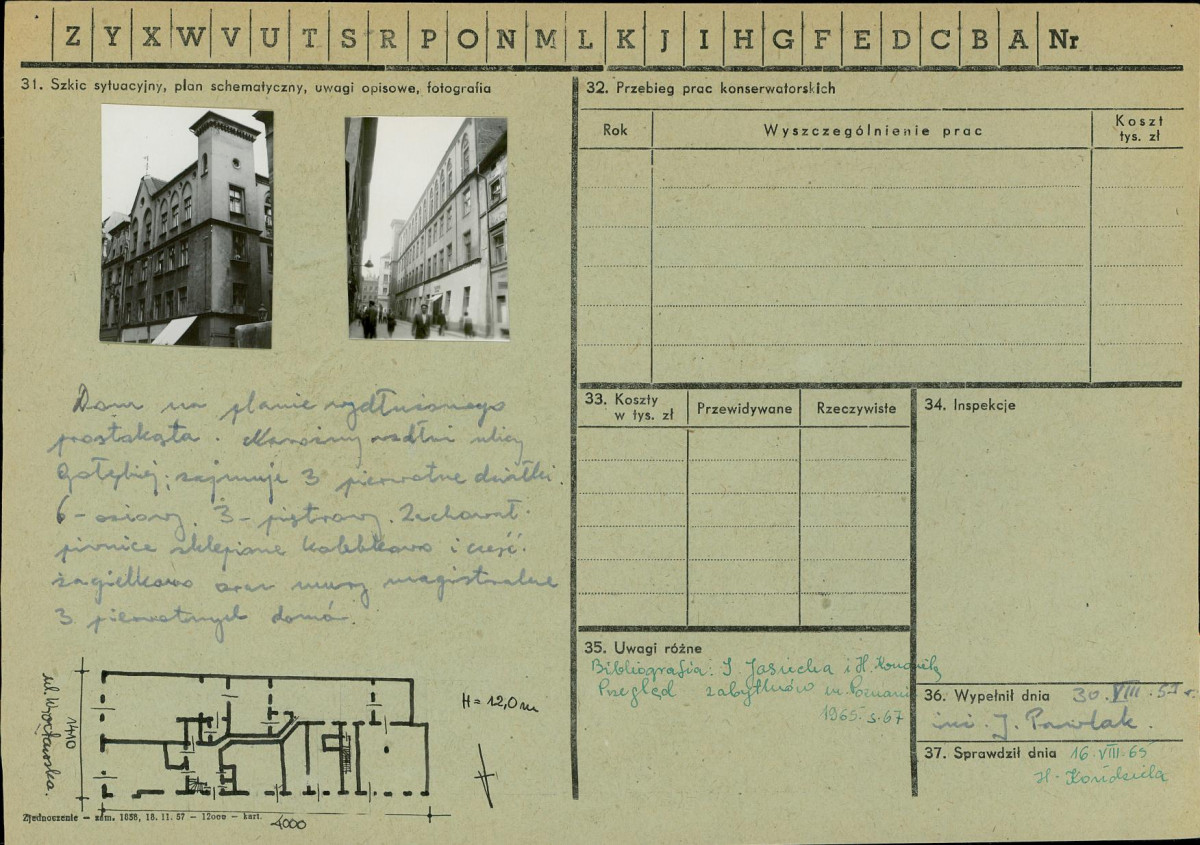 Z Y X W V U T S R P O N M L K J I H G F E D C B A Nr
31. Szkic sytuacyjny, plan schematyczny, uwagi opisowe, fotografia
Dom na planie wydłużonego
prostokąta. Narożny wzdłuż ulicy
Gołębiej; zajmuje 3 pierwotne działki.
6-osiowy, 3-piętrowy. Zachował.
piwnice sklepione kolebkowo i część.
żagielkowo oraz mury magistralne
3 pierwotnych domów.
ul. Wrocławska.
1410
H = 12,0 m
4000
Zjednoczenie — zam. 1858, 18. 11. 57 — 12000 — kart.
32. Przebieg prac konserwatorskich
Rok
Wyszczególnienie prac
Koszt
tys. zł
33. Koszty
w tys. zł
Przewidywane
Rzeczywiste
34. Inspekcje
35. Uwagi różne
Bibliografia: I. Jasiecka i H.
Przegląd zabytków m. Poznania
1965 s. 67
36. Wypełnił dnia 30. VIII. 59 r.
inż. J. Pawlak.
37. Sprawdził dnia 16. VIII. 65
H.